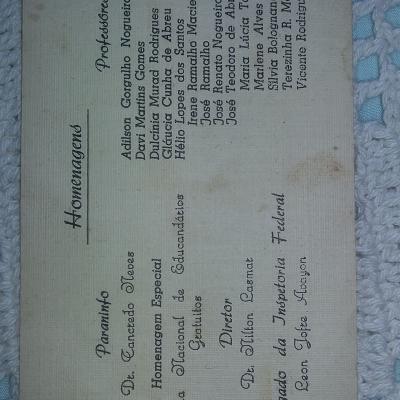 Homenagens
Paraninfo
Dr. Tancredo Neves
Homenagem Especial
a Nacional de Educandários
Gratuitos
Diretor
Dr. Milton Lasmar
gado da Inspetoria Federal
Leon Jofre
Professôre
Adilson Gorgulho Nogueir
Davi Martins Gomes
Dulcínia Murad Rodrigues
Gláucia Cunha de Abreu
Hélio Lopes dos Santos
Irene Ramalho Macie
José Ramalho
José Renato Nogueir
José Teodoro de Abr
Maria Lúcia T
Marlene Alves
Sílvia Bologna
Terezinha R. M
Vicente Rodrigu